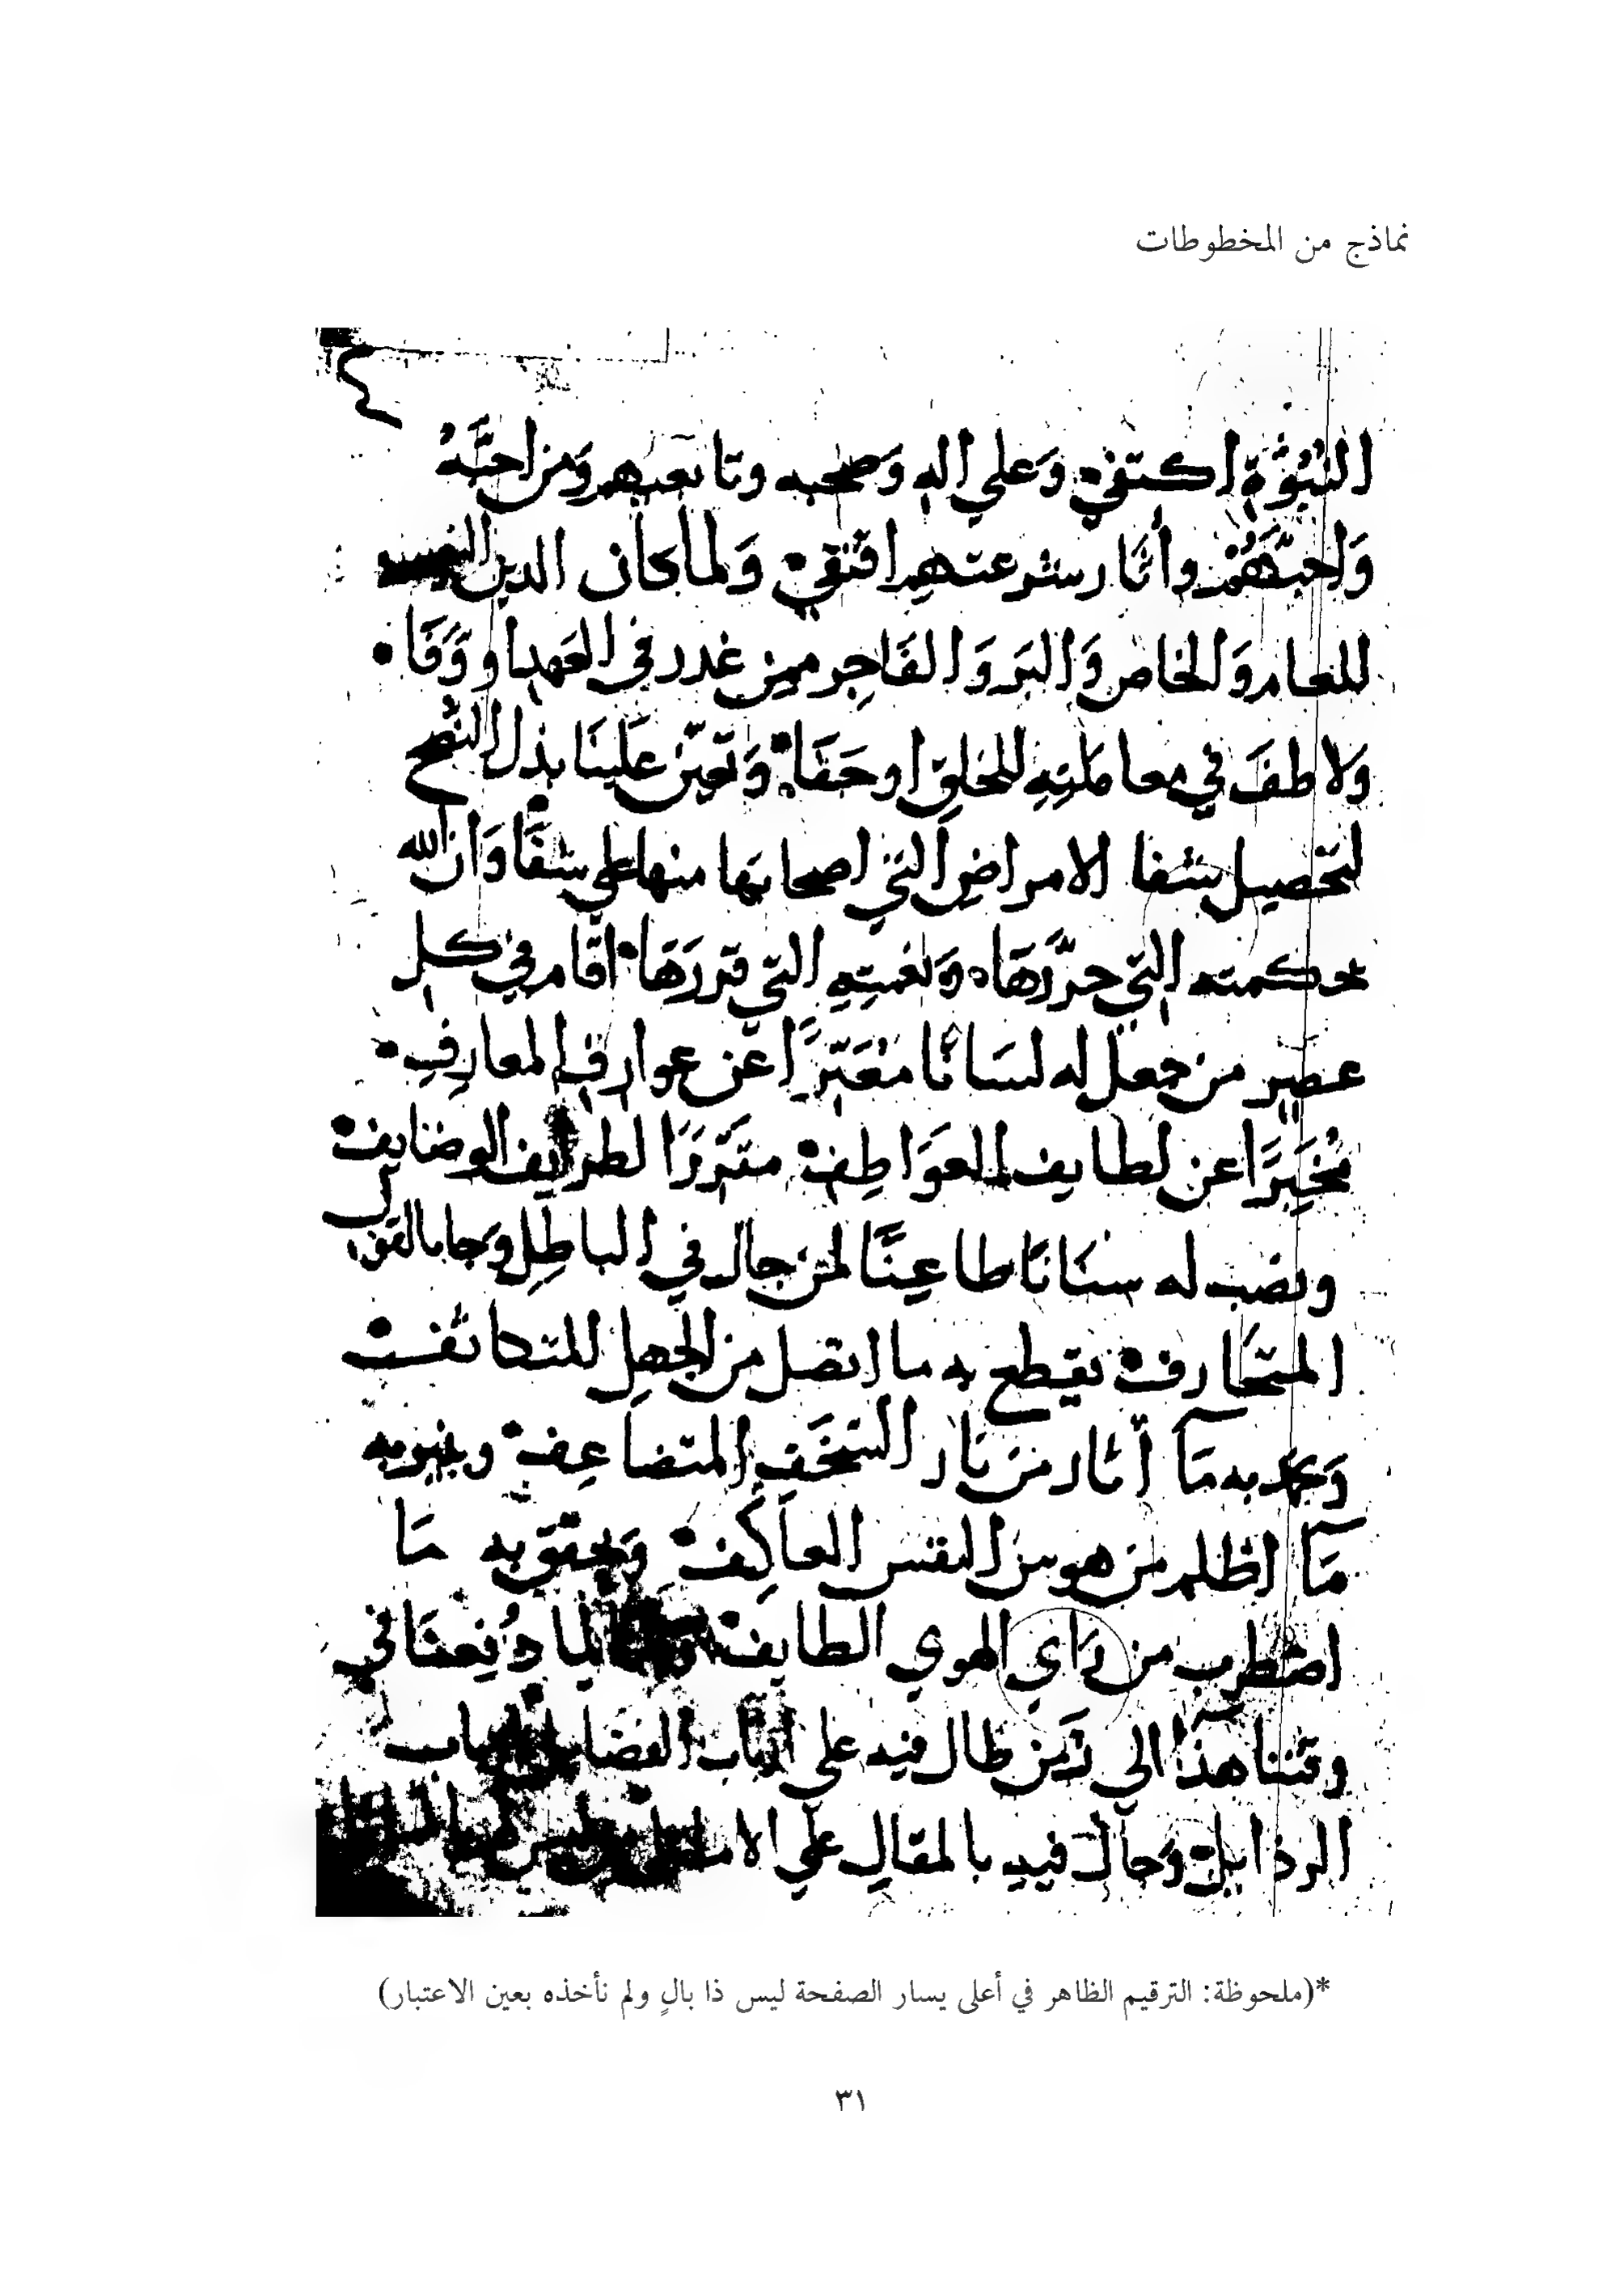 نماذج من المخطوطات
٤
النُبُوَّة اكتفي وَعلي اله وَصحبه وتابعيهم وَمن احبَّهُ
وَاحبَّهَمُ وأثارِ شرعتهِم اقتفي وَلما كان الدين
للعام وَالخاص وَالبَر وَ الفَاجِر ممن غدر في العَهد او وَفَا
وَلاطفَ في معاملتِهِ للخلقِ او حَفَا وَتعيّن عَلينَا بذل النُّصح
لتحصيل شفا الامراضِ التي اصحابها منها علي شفَا وَان الله
بحكمته التي حرَّرَهَا وَنعمتِهِ التي قررَهَا اقام في كل
عصرٍ من جعل له لسَانًا مُعَبِّرًا عَن عوارفِ المعارِفِ
مُخبِرًا عن لطايف العوَاطِف مقَرِّرًا لطرايف الوضايف
ونصب له سنَانًا طاعِنًا لمن جال في الباطِلِ وَجا بالقول
المتحَارف يقطع به ما اتصل من الجهلِ المتكاثف
وَيخمد به مَا أثار من نار السّخَفِ المتضاعِف وينير به
مَا اظلم من هوس النفس العاكِف وَيحقق به مَا
اضطرب من رَاي الهوي الطايف دُفِعنَا في
وقتنا هذَا الي زَمَن طال فيه علي ارباب الفضايل
الرذايل وَجال فيهِ بالمقالِ علي
*(ملحوظة: الترقيم الظاهر في أعلى يسار الصفحة ليس ذا بالٍ ولم نأخذه بعين الاعتبار)
٣١